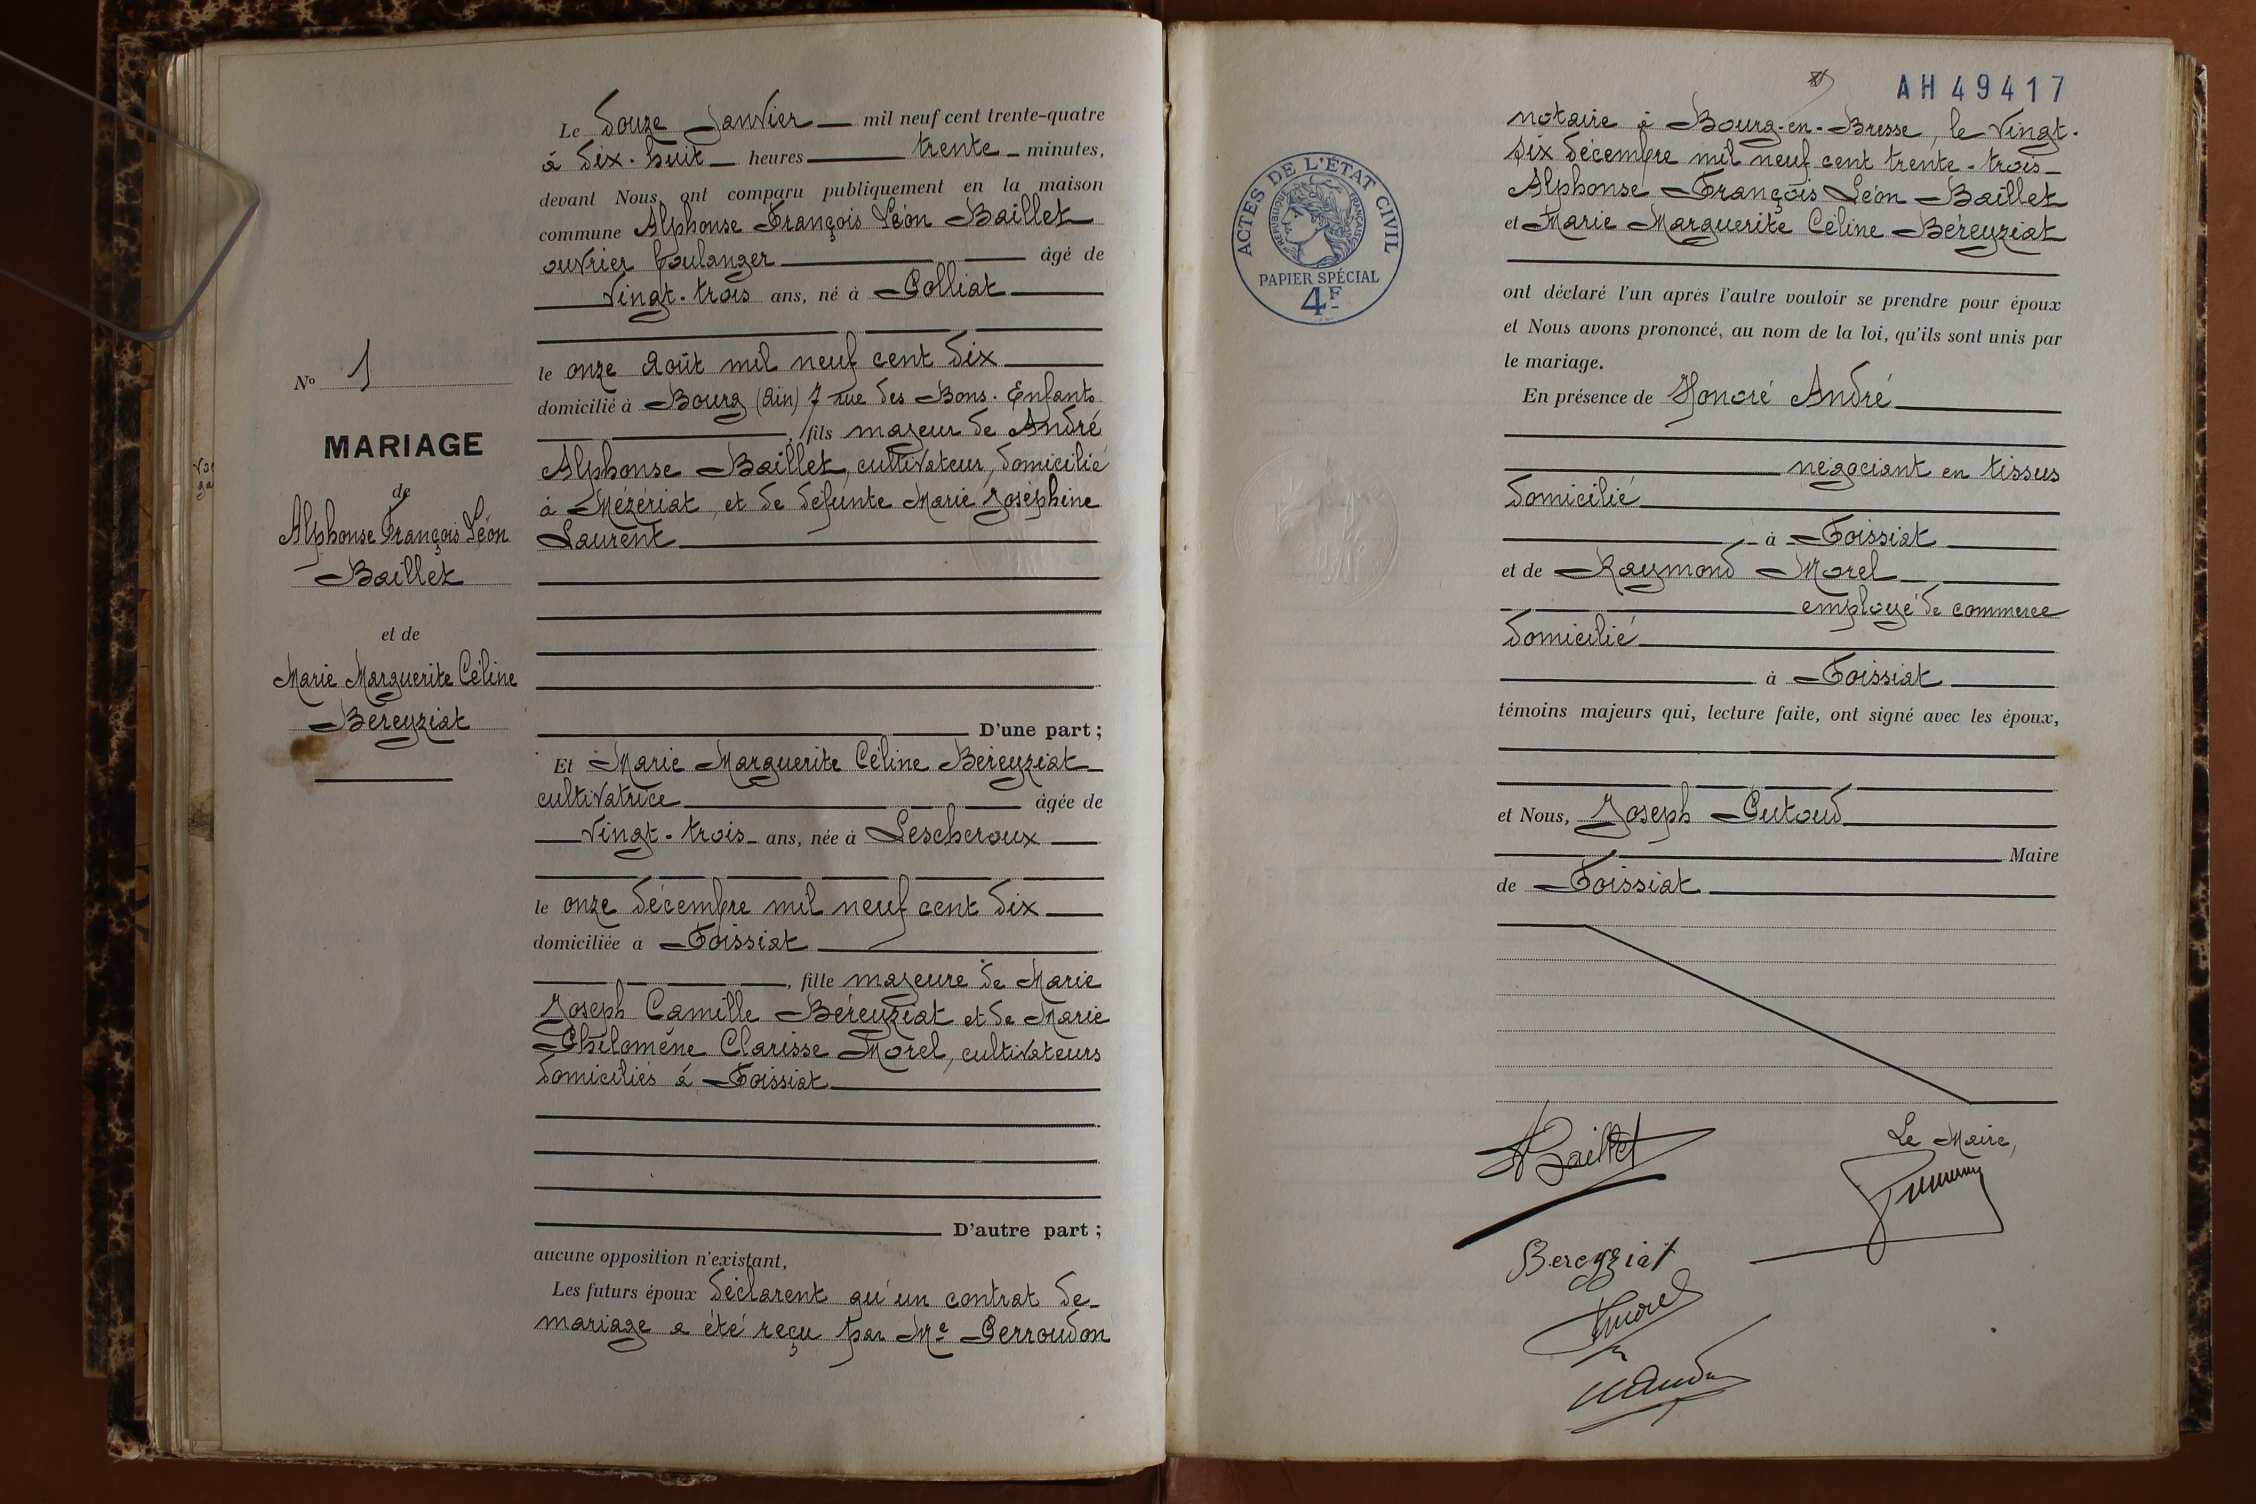 Le douze Janvier mil neuf cent trente-quatre
à dix-huit heures trente minutes,
devant Nous ont comparu publiquement en la maison
commune Alphonse François Léon Baillet
ouvrier boulanger âgé de
vingt-trois ans, né à Polliat
le onze Août mil neuf cent dix
domicilié à Bourg (Ain) 7 rue des Bons-Enfants
, fils majeur de André
Alphonse Baillet, cultivateur, domicilié
à Mézériat, et de défunte Marie Joséphine
Laurent
D'une part ;
Et Marie Marguerite Céline Béreyziat
cultivatrice âgée de
vingt-trois ans, née à Lescheroux
le onze décembre mil neuf cent dix
domiciliée à Foissiat
, fille majeure de Marie
Joseph Camille Béreyziat et de Marie
Philomène Clarisse Morel, cultivateurs
domiciliés à Foissiat
D'autre part ;
aucune opposition n'existant,
Les futurs époux déclarent qu'un contrat de
mariage a été reçu par Me Perroudon
No 1
MARIAGE
de
Alphonse François Léon
Baillet
et de
Marie Marguerite Céline
Béreyziat
AH49417
notaire à Bourg-en-Bresse, le vingt-
six décembre mil neuf cent trente-trois
Alphonse François Léon Baillet
et Marie Marguerite Céline Béreyziat
ont déclaré l'un après l'autre vouloir se prendre pour époux
et Nous avons prononcé, au nom de la loi, qu'ils sont unis par
le mariage.
En présence de Honoré André
négociant en tissus
domicilié
à Foissiat
et de Raymond Morel
employé de commerce
domicilié
à Foissiat
témoins majeurs qui, lecture faite, ont signé avec les époux,
et Nous, Joseph Putoud
Maire
de Foissiat
ACTES DE L'ÉTAT CIVIL
RÉPUBLIQUE FRANÇAISE
PAPIER SPÉCIAL
4F
ABaillet
Le Maire,
Bereyziat
Morel